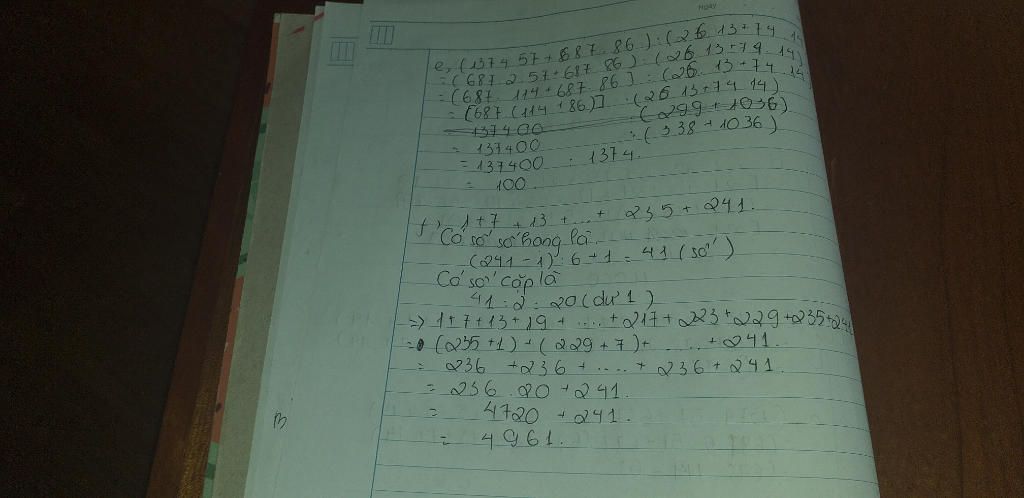 NGÀY
e, (1374.57+687.86):(26.13+74.14
=(687.2.57+687.86):(26.13+74.14)
=(687.114+687.86]:(26.13+74.14
=[687.(114+86)]:(26.13+74.14)
137400 (299+1036)
= 137400 :(338+1036)
= 137400 : 1374.
= 100.
f, 1+7+13+...+ 235+241.
Có số số hạng là
(241-1):6+1=41 (số)
Có số cặp là
41:2=20(dư 1)
=> 1+7+13+19+....+217+223+229+235+241
= (235+1)+(229+7)+.....+241.
= 236 +236+....+ 236+241.
= 236.20+241.
= 4720 +241.
= 4961.